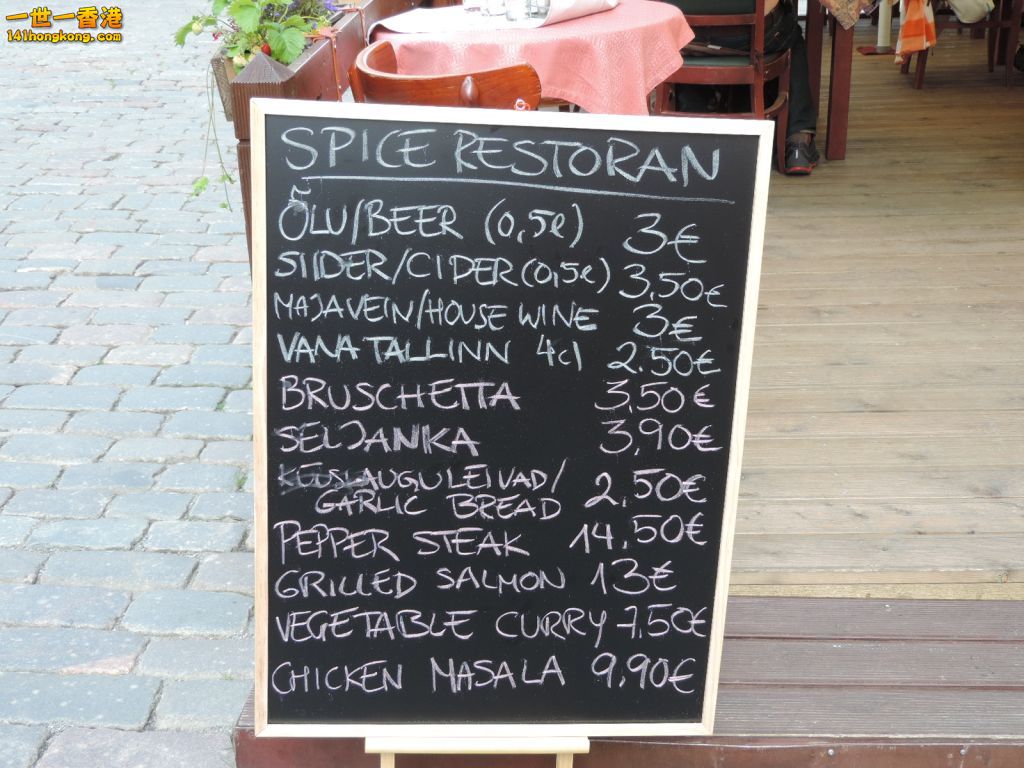 一世一香港
141hongkong.com
SPICE RESTORAN
ÕLU/BEER (0,5l) 3€
SIIDER/CIDER (0,5l) 3,50€
MAJAVEIN/HOUSE WINE 3€
VANA TALLINN 4cl 2.50€
BRUSCHETTA 3,50€
SELJANKA 3,90€
KÜÜSLAUGULEIVAD/
GARLIC BREAD 2,50€
PEPPER STEAK 14,50€
GRILLED SALMON 13€
VEGETABLE CURRY 7,50€
CHICKEN MASALA 9,90€